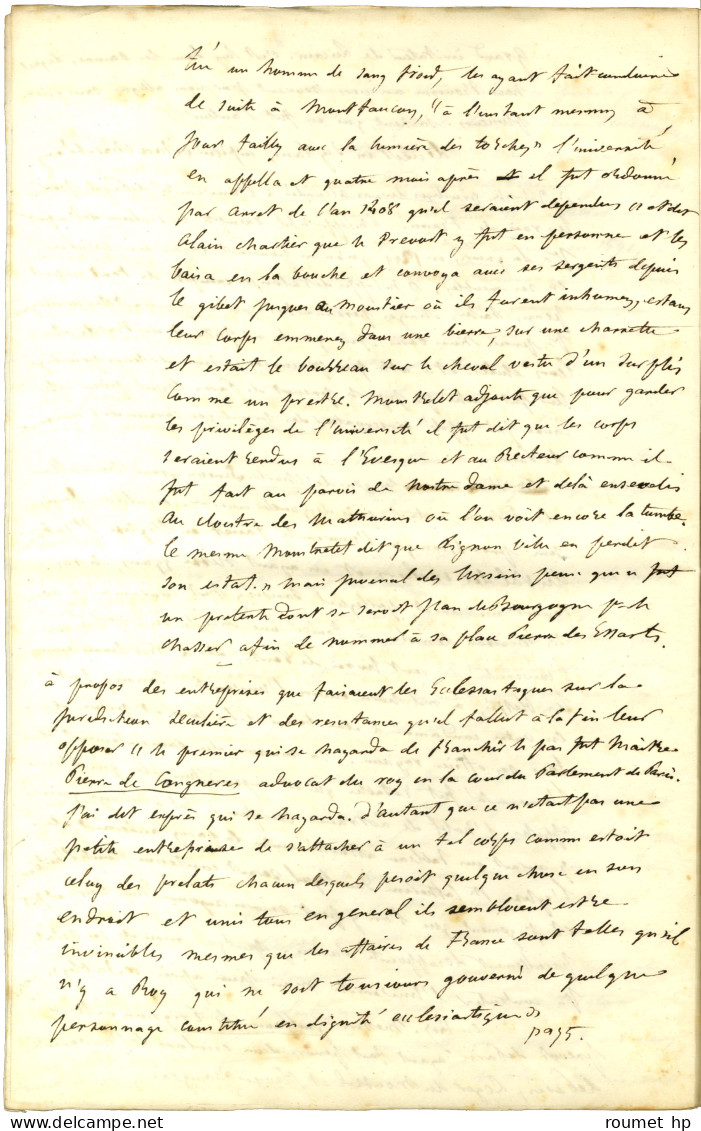 tué un homme de sang froid, les ayant fait conduire
de suite à Montfaucon, "à l'instant mesmes à
jour failly avec la lumière des torches" l'université
en appella et quatre mois après il fut ordonné
par arret de l'an 1408 qu'il seraient dependus " et dit
alain chartier que le Prevost y fut en personne et les
baisa en la bouche et convoya avec ses sergents depuis
le gibet jusques au moustier où ils furent inhumez, estans
leur corps emmenez dans une bierre, sur une charrette
et estait le bourreau sur le cheval vestu d'un surplis
comme un prestre. Monstrelet adjoute que pour garder
les privilèges de l'université il fut dit que les corps
seraient rendus à l'Evesque et au Recteur comme il
fut fait au parvis de nostre dame et delà ensevelis
au cloistre des Mathurins où l'on voit encore la tumbe.
le mesme Monstrelet dit que Tignonville en perdit
son estat." mais juvenal des Ursins pense que ce fut
un pretexte dont se servit Jean de Bourgogne pr le
chasser afin de nommer à sa place Pierre des Essarts.
à propos des entreprises que faisaient les Eclessiastiques sur la
juridiction seculière et des resistances qu'il fallut à la fin leur
opposer " le premier qui se hazarda de franchir le pas fut Maître
Pierre de Congneres advocat du roy en la cour du Parlement de Paris.
J'ai dit exprès qui se hazarda. d'autant que ce n'etait pas une
petite entreprise de s'attacher à un tel corps comme estoit
celuy des prelats chacun desquels pesoit quelque chose en son
endroit et unis tous en general ils sembloient estre
invincibles mesmes que les affaires de France sont telles qu'il
n'y a Roy qui ne soit tousiours gouverné de quelque
personnage constitué en dignité ecclesiastique "
pag 5.
roumet hp
www.delcampe.net